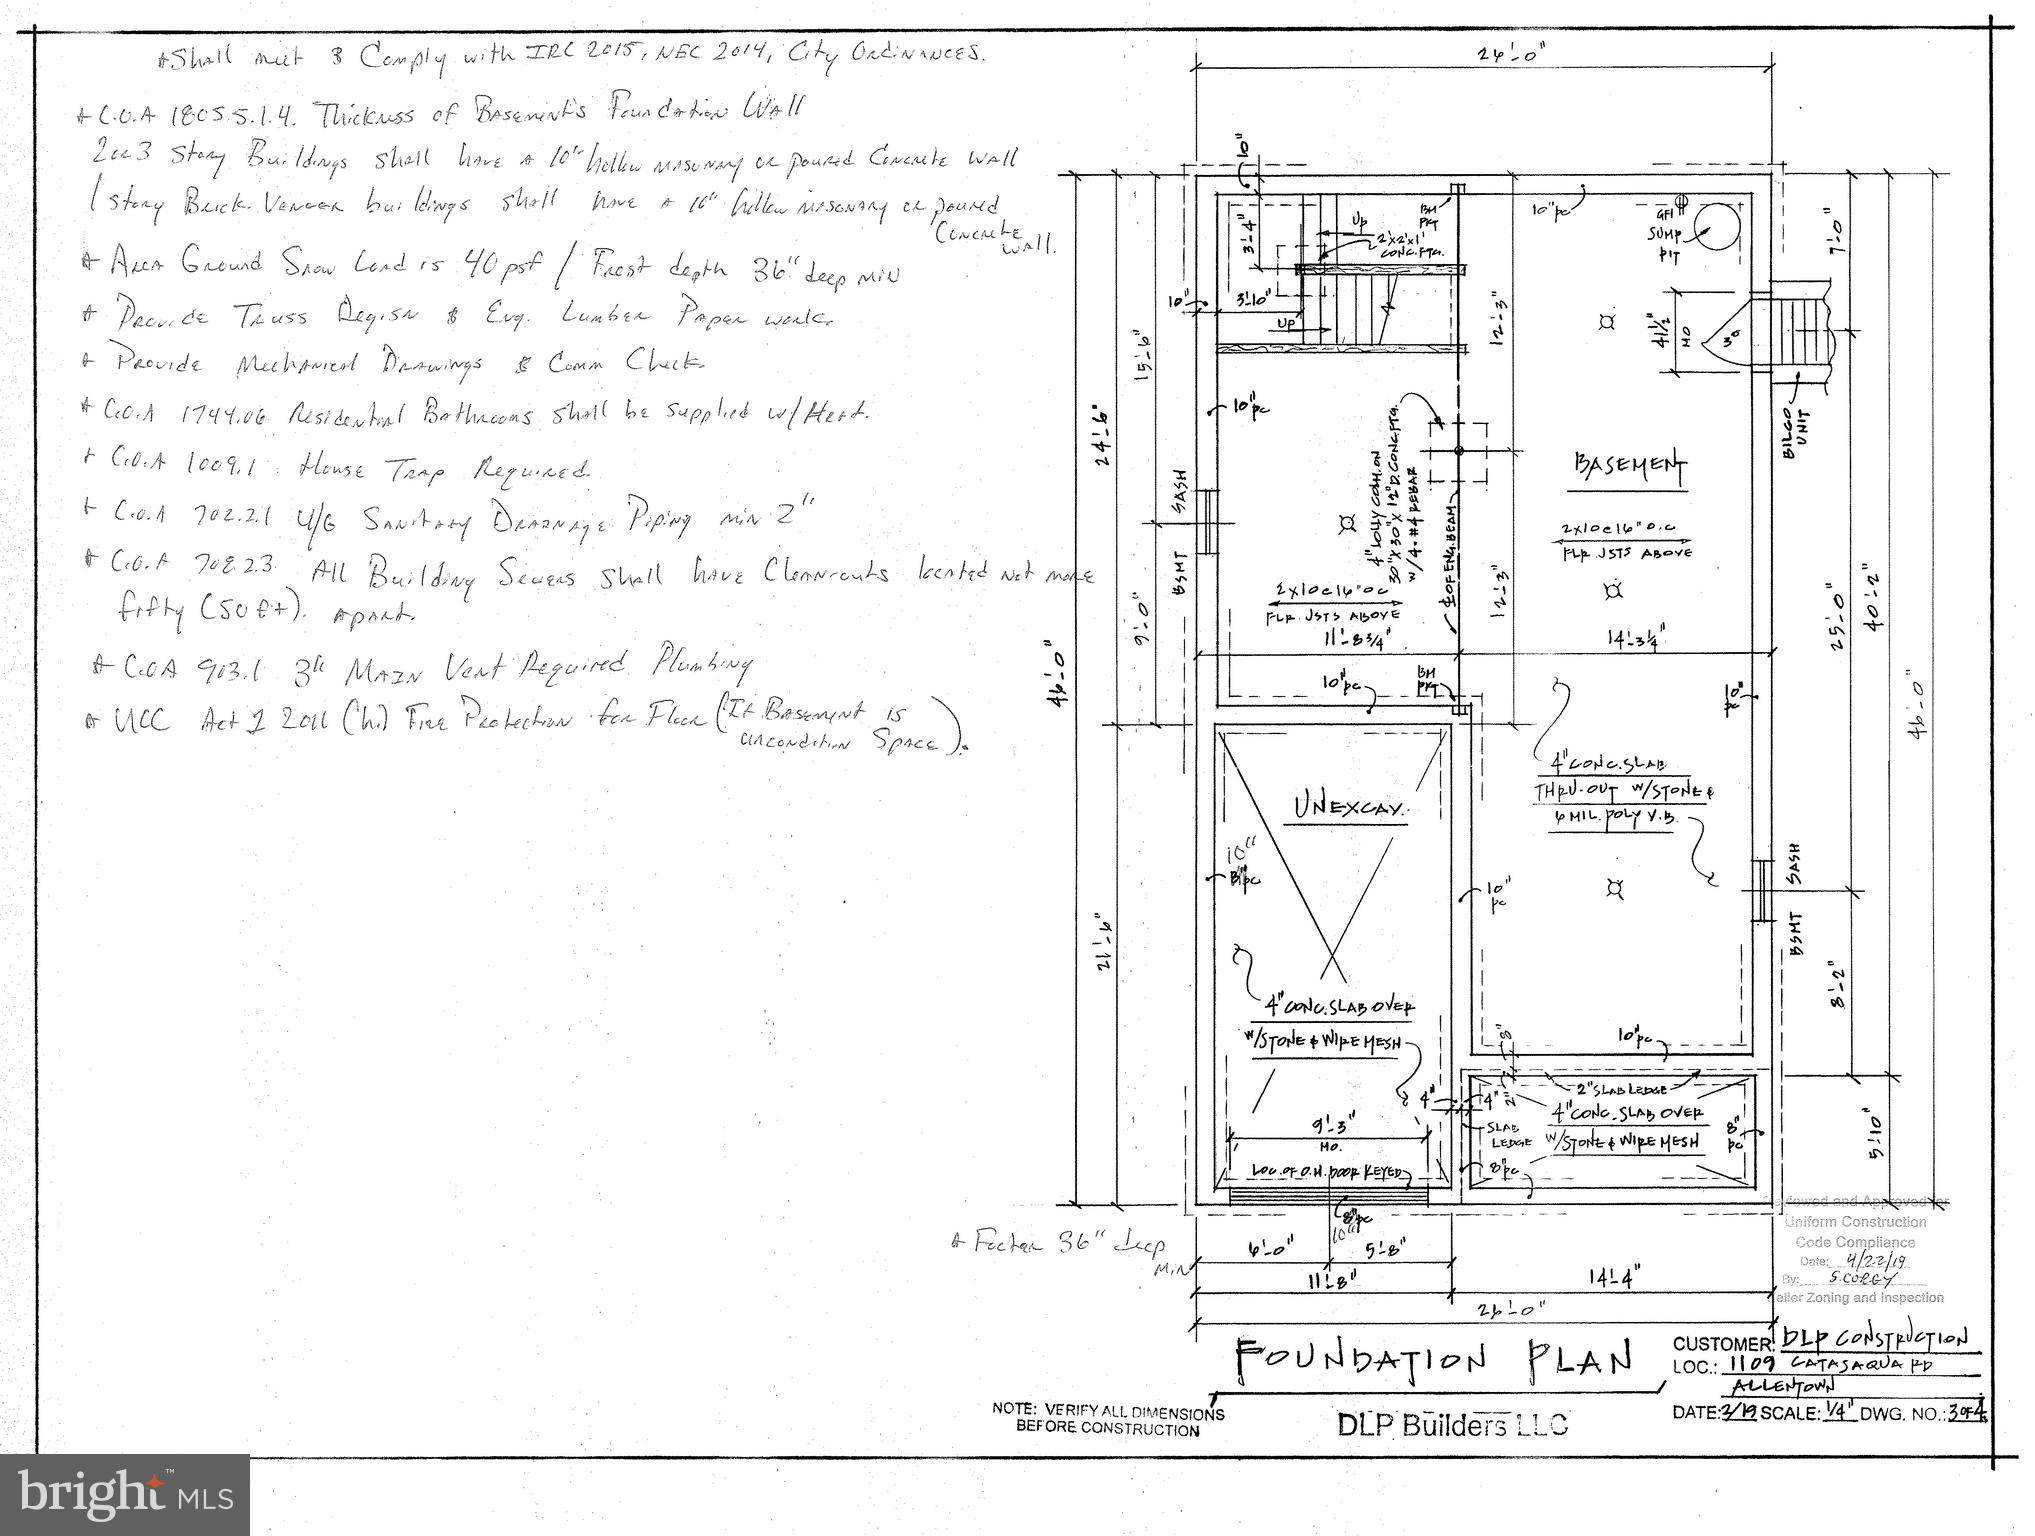 *Shall meet & Comply with IRC 2015, NEC 2014, City Ordinances.
* C.O.A 1805.5.1.4. Thickness of Basement's Foundation Wall
2or3 Story Buildings shall have a 10" hollow masonry or poured Concrete wall
1 story Brick Veneer buildings shall have a 10" hollow masonary or poured
Concrete wall.
* Area Ground Snow Load is 40 psf / Frost depth 36" deep min
* Provide Truss Degisn & Eng. Lumber Paper work.
* Provide Mechanical Drawings & Comm Check.
* C.O.A 1744.06 Residential Bathrooms shall be supplied w/Heat.
* C.O.A 1009.1 House Trap Required.
* C.O.A 702.2.1 U/G Sanitary Drainage Piping min 2"
* C.O.A 708.2.3 All Building Sewers shall have Clean-outs located not more
fifty (50ft). apart.
* C.O.A 903.1 3" Main Vent Required Plumbing
* UCC Act 1 2011 (h.) Fire Protection for Floor (If Basement is
uncondition Space).
26'-0"
10"
3'-4"
UP
BM
PKT
2'x2'x1'
CONC. FTG.
10"pc
GFI
SUMP
PIT
7'-0"
10"
3'-10"
UP
12'-3"
41 1/2"
MO
3°
BILCO
UNIT
15'-6"
24'-6"
10"pc
BSMT SASH
4" LOLLY COL. ON
30"x30"x12"D. CONC. FTG.
W/4-#4 REBAR
BASEMENT
2x10@16"O.C
FLR JSTS ABOVE
2x10@16"OC
FLR JSTS ABOVE
℄ OF ENG. BEAM
12'-3"
9'-0"
11'-8 3/4"
14'-3 1/4"
25'-0"
40'-2"
46'-0"
46'-0"
10"pc
BM
PKT
10"
pc
4" CONC. SLAB
THRU-OUT W/STONE &
6 MIL. POLY V.B.
UNEXCAV.
10"
8"pc
10"
pc
BSMT SASH
21'-6"
8'-2"
4" CONC. SLAB OVER
W/STONE & WIRE MESH
10"pc
8"
2"
2" SLAB LEDGE
4" CONC. SLAB OVER
W/STONE & WIRE MESH
4"
4"
SLAB
LEDGE
8"
pc
8"pc
5'-10"
9'-3"
MO.
LOC. OF O.H. DOOR KEYED
8"pc
10"
* Footer 36" deep
Min
6'-0"
5'-8"
11'-8"
14'-4"
26'-0"
Reviewed and Approved for
Uniform Construction
Code Compliance
Date: 4/22/19
By:
eller Zoning and Inspection
FOUNDATION PLAN
DLP Builders LLC
NOTE: VERIFY ALL DIMENSIONS
BEFORE CONSTRUCTION
CUSTOMER: DLP CONSTRUCTION
LOC.: 1109 CATASAQUA RD
ALLENTOWN
DATE: 2/19 SCALE: 1/4" DWG. NO.: 3 OF 4
bright™ MLS